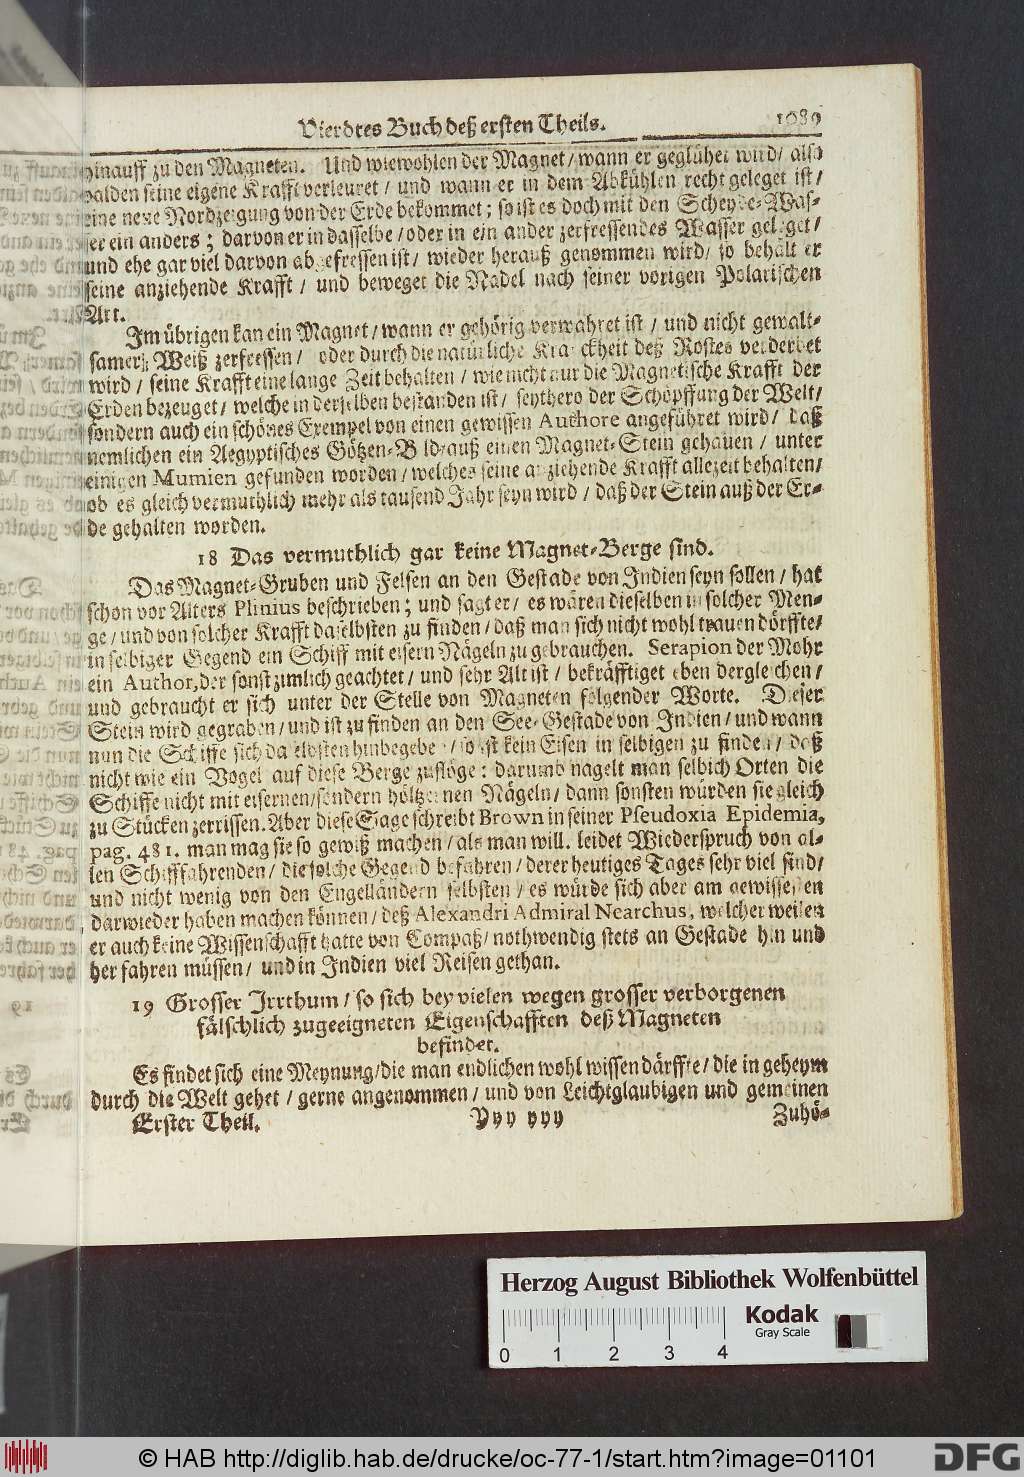 Vierdtes Buch deß ersten Theils. 1089
hinauff zu den Magneten. Und wiewohlen der Magnet / wann er geglühet wird / also
balden seine eigene Krafft verleuret / und wann er in dem Abkühlen recht geleget ist /
eine neue Nordzeigung von der Erde bekommet; so ist es doch mit den Scheyde-Was-
ser ein anders; darvon er in dasselbe / oder in ein ander zerfressendes Wasser geleget /
und ehe gar viel darvon abgefressen ist / wieder herauß genommen wird / so behält er
seine anziehende Krafft / und beweget die Nadel nach seiner vorigen Polarischen
Art.
Im übrigen kan ein Magnet / wann er gehörig verwahret ist / und nicht gewalt-
samer Weiß zerfressen / oder durch die natürliche Kranckheit deß Rostes verderbet
wird / seine Krafft eine lange Zeit behalten / wie nicht nur die Magnetische Krafft der
Erden bezeuget / welche in derselben bestanden ist / seythero der Schöpffung der Welt /
sondern auch ein schönes Exempel von einen gewissen Authore angeführet wird / daß
nemlichen ein Aegyptisches Götzen-Bild auß einen Magnet-Stein gehauen / unter
einigen Mumien gefunden worden / welches seine anziehende Krafft allezeit behalten /
ob es gleich vermuthlich mehr als tausend Jahr seyn wird / daß der Stein auß der Er-
de gehalten worden.
18 Das vermuthlich gar keine Magnet-Berge sind.
Das Magnet-Gruben und Felsen an den Gestade von Indien seyn sollen / hat
schon vor Alters Plinius beschrieben; und sagt er / es wären dieselben in solcher Men-
ge / und von solcher Krafft daselbsten zu finden / daß man sich nicht wohl trauen dörffte /
in selbiger Gegend ein Schiff mit eisern Nägeln zu gebrauchen. Serapion der Mohr
ein Author, der sonst zimlich geachtet / und sehr Alt ist / bekräfftiget eben dergleichen /
und gebraucht er sich unter der Stelle von Magneten folgender Worte. Dieser
Stein wird gegraben / und ist zu finden an den See-Gestade von Indien / und wann
nun die Schiffe sich daselbsten hinbegeben / so ist kein Eisen in selbigen zu finden / daß
nicht wie ein Vogel auf diese Berge zuflöge: darumb nagelt man selbich Orten die
Schiffe nicht mit eisernen / sondern höltzernen Nägeln / dann sonsten würden sie gleich
zu Stücken zerrissen. Aber diese Sage schreibt Brown in seiner Pseudoxia Epidemia,
pag. 481. man mag sie so gewiß machen / als man will. leidet Wiederspruch von al-
len Schifffahrenden / die solche Gegend befahren / derer heutiges Tages sehr viel sind /
und nicht wenig von den Engelländern selbsten / es würde sich aber am gewissesten
darwieder haben machen können / deß Alexandri Admiral Nearchus, welcher weilen
er auch keine Wissenschafft hatte von Compaß / nothwendig stets an Gestade hin und
her fahren müssen / und in Indien viel Reisen gethan.
19 Grosser Irrthum / so sich bey vielen wegen grosser verborgenen
fälschlich zugeeigneten Eigenschafften deß Magneten
befindet.
Es findet sich eine Meynung / die man endlichen wohl wissen därffte / die in geheym
durch die Welt gehet / gerne angenommen / und von Leichtglaubigen und gemeinen
Erster Theil. Yyy yyy Zuhö-
Herzog August Bibliothek Wolfenbüttel
Kodak
Gray Scale
0 1 2 3 4
© HAB http://diglib.hab.de/drucke/oc-77-1/start.htm?image=01101 DFG